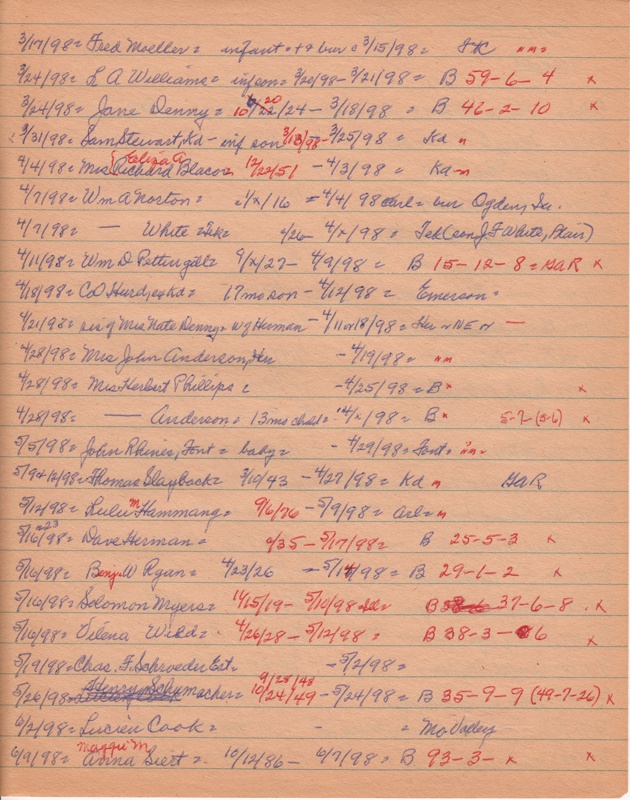 3/17/98 = Fred Moeller = infant = +9 bur c 3/15/98 = IK "n"=
3/24/98 = L A Williams = inf son = 3/20/98 - 3/21/98 = B 59-6-4 x
3/24/98 = Jane Denny = 10/20/24 - 3/18/98 = B 46-2-10 x
3/31/98 = Sam Stewart, Kd - inf son 3/13/98 - 3/25/98 = Kd n
4/4/98 = Mrs (Eliza A Richard Blacor 12/22/51 - 4/3/98 = Kd n
4/7/98 = Wm A Norton = 1/x/16 = 4/4/98 = bur Ogden, Ia.
4/7/98 = — White = 4/26 - 4/x/98 = Ted (son J F White, Plais)
4/11/98 = Wm D Pettingill = 9/x/27 - 4/9/98 = B 15-12-8 = GAR x
4/18/98 = CD Hurd, Kd = 17 mo son - 4/12/98 = Emerson =
4/21/98 = sis of Mrs Nate Denny = w of Herman - 4/11 or 18/98 = NE n —
4/28/98 = Mrs John Anderson, - 4/19/98 = "n"
4/28/98 = Mrs Herbert Phillips - 4/25/98 = B x x
4/28/98 = — Anderson = 13 mo child = 4/x/98 = B x 5-7-(5-6) x
5/5/98 = John Rhines, Font = baby = - 4/29/98 = Font = "n"=
5/9+12/98 = Thomas Slayback = 3/10/43 - 4/27/98 = Kd n GAR
5/12/98 = Lulu M Hammang = 9/6/76 - 5/9/98 = Arl = n
5/16/98 = Dave Herman = 9/35 - 5/17/98 = B 25-5-3 x
5/16/98 = Benj W Ryan = 4/23/26 - 5/14/98 = B 29-1-2 x
5/16/98 = Solomon Myers = 11/15/19 - 5/10/98 = B 37-6-8 x
5/16/98 = Vilena Wild = 4/26/28 - 5/12/98 = B 38-3-6 x
5/19/98 = Chas. F. Schroeder Est = - 5/2/98 =
5/26/98 = Henry Schumacher = 9/28/48 10/24/49 - 5/24/98 = B 35-9-9 (49-7-26) x
6/2/98 = Lucien Cook = - = Mo Valley
6/9/98 = Maggie M. Anna Siert = 10/12/86 - 6/7/98 = B 93-3- x x